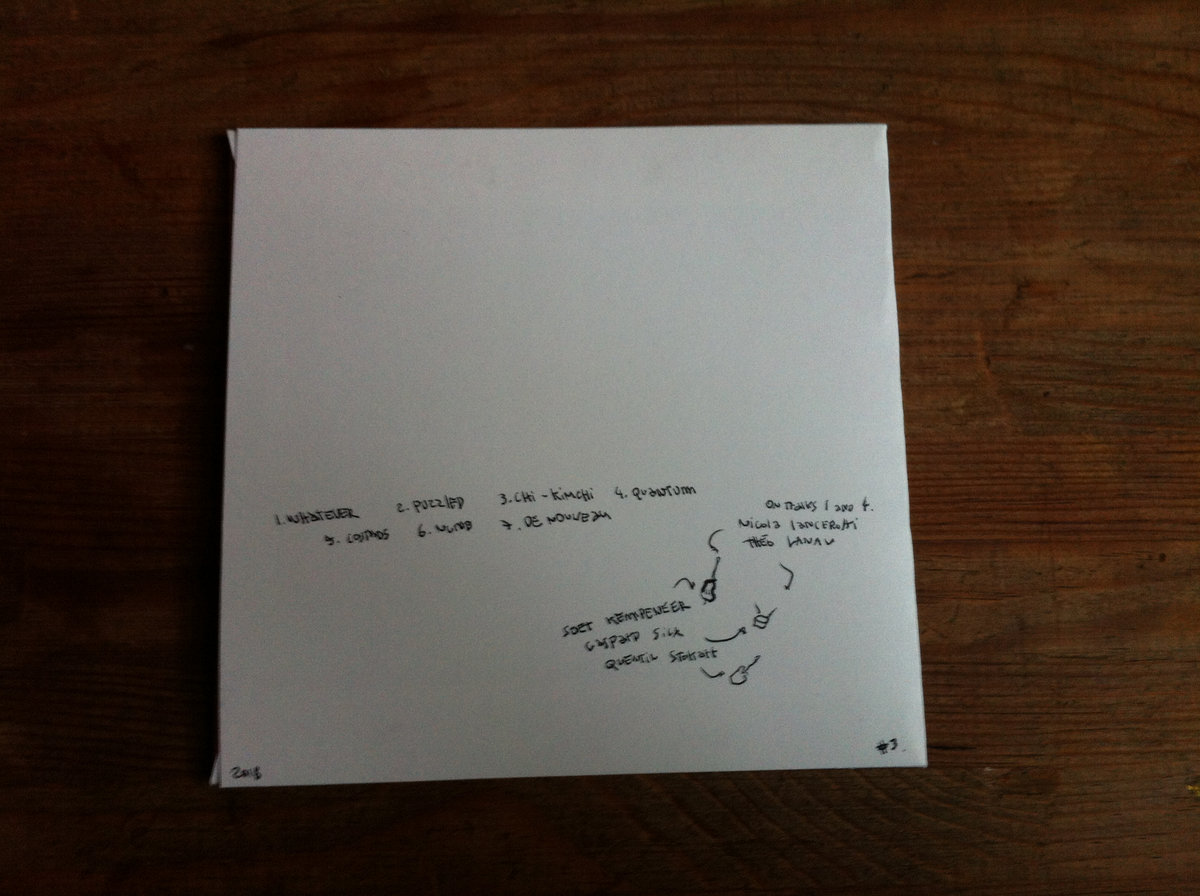 1. WHATEVER 2. PUZZLED 3. CHI - KIMCHI 4. QUANTUM
5. COSMOS 6. NUMB 7. DE NOUVEAU
ON TRACKS 1 AND 4.
NICOLA LANCEROTTI
THÉO LANAU
SOET KEMPENEER
GASPARD SICX
QUENTIN STOKART
2018
#3.